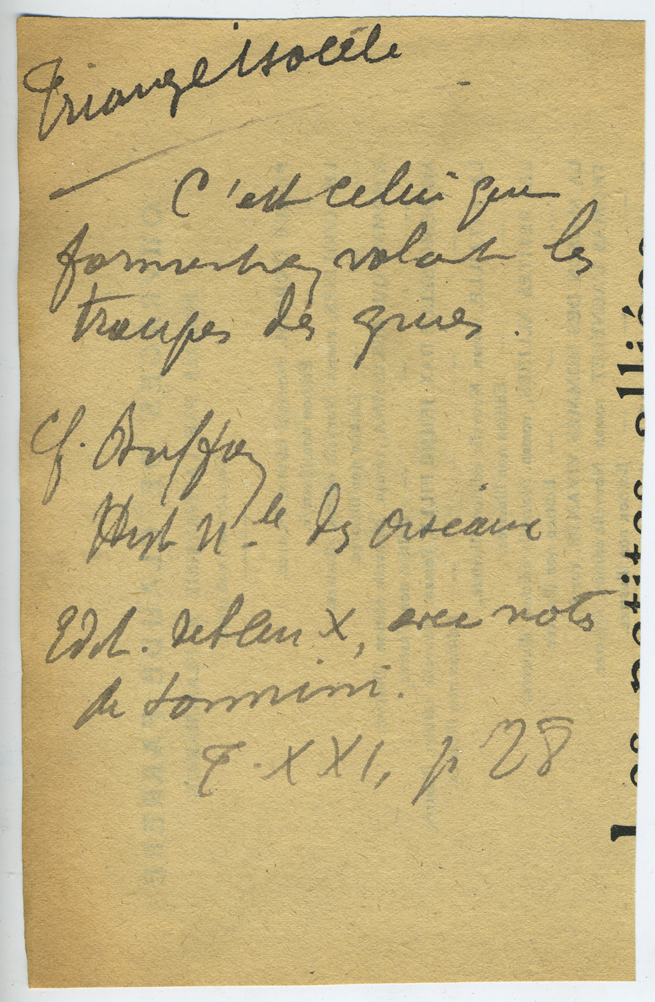 Triangle isocèle
C'est celui que
forment en volant les
troupes des grues.
Cf. Buffon
Hist Nlle des oiseaux
Edit. an X, avec notes
de Sonnini.
T. XXI, p 28
Les petites alliées